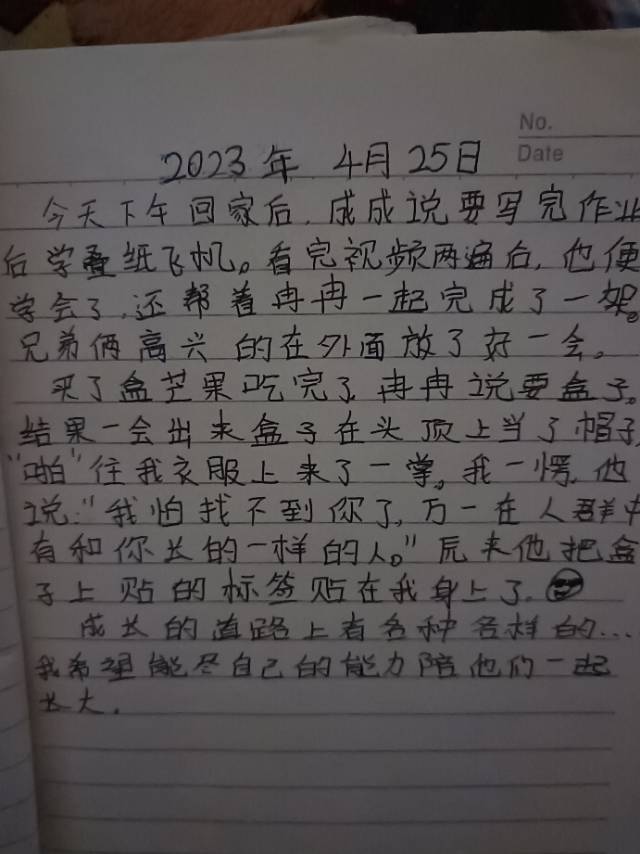 No.
Date
2023年 4月25日
今天下午回家后,成成说要写完作业
后学叠纸飞机。看完视频两遍后,他便
学会了,还帮着冉冉一起完成了一架。
兄弟俩高兴的在外面放了好一会。
买了盒芒果吃完了,冉冉说要盒子。
结果一会出来盒子在头顶上当了帽子,
"啪"往我衣服上来了一掌。我一愣,他
说:"我怕找不到你了,万一在人群中
有和你长的一样的人。"原来他把盒
子上贴的标签贴在我身上了。
成长的道路上有各种各样的...
我希望能尽自己的能力陪他们一起
长大。